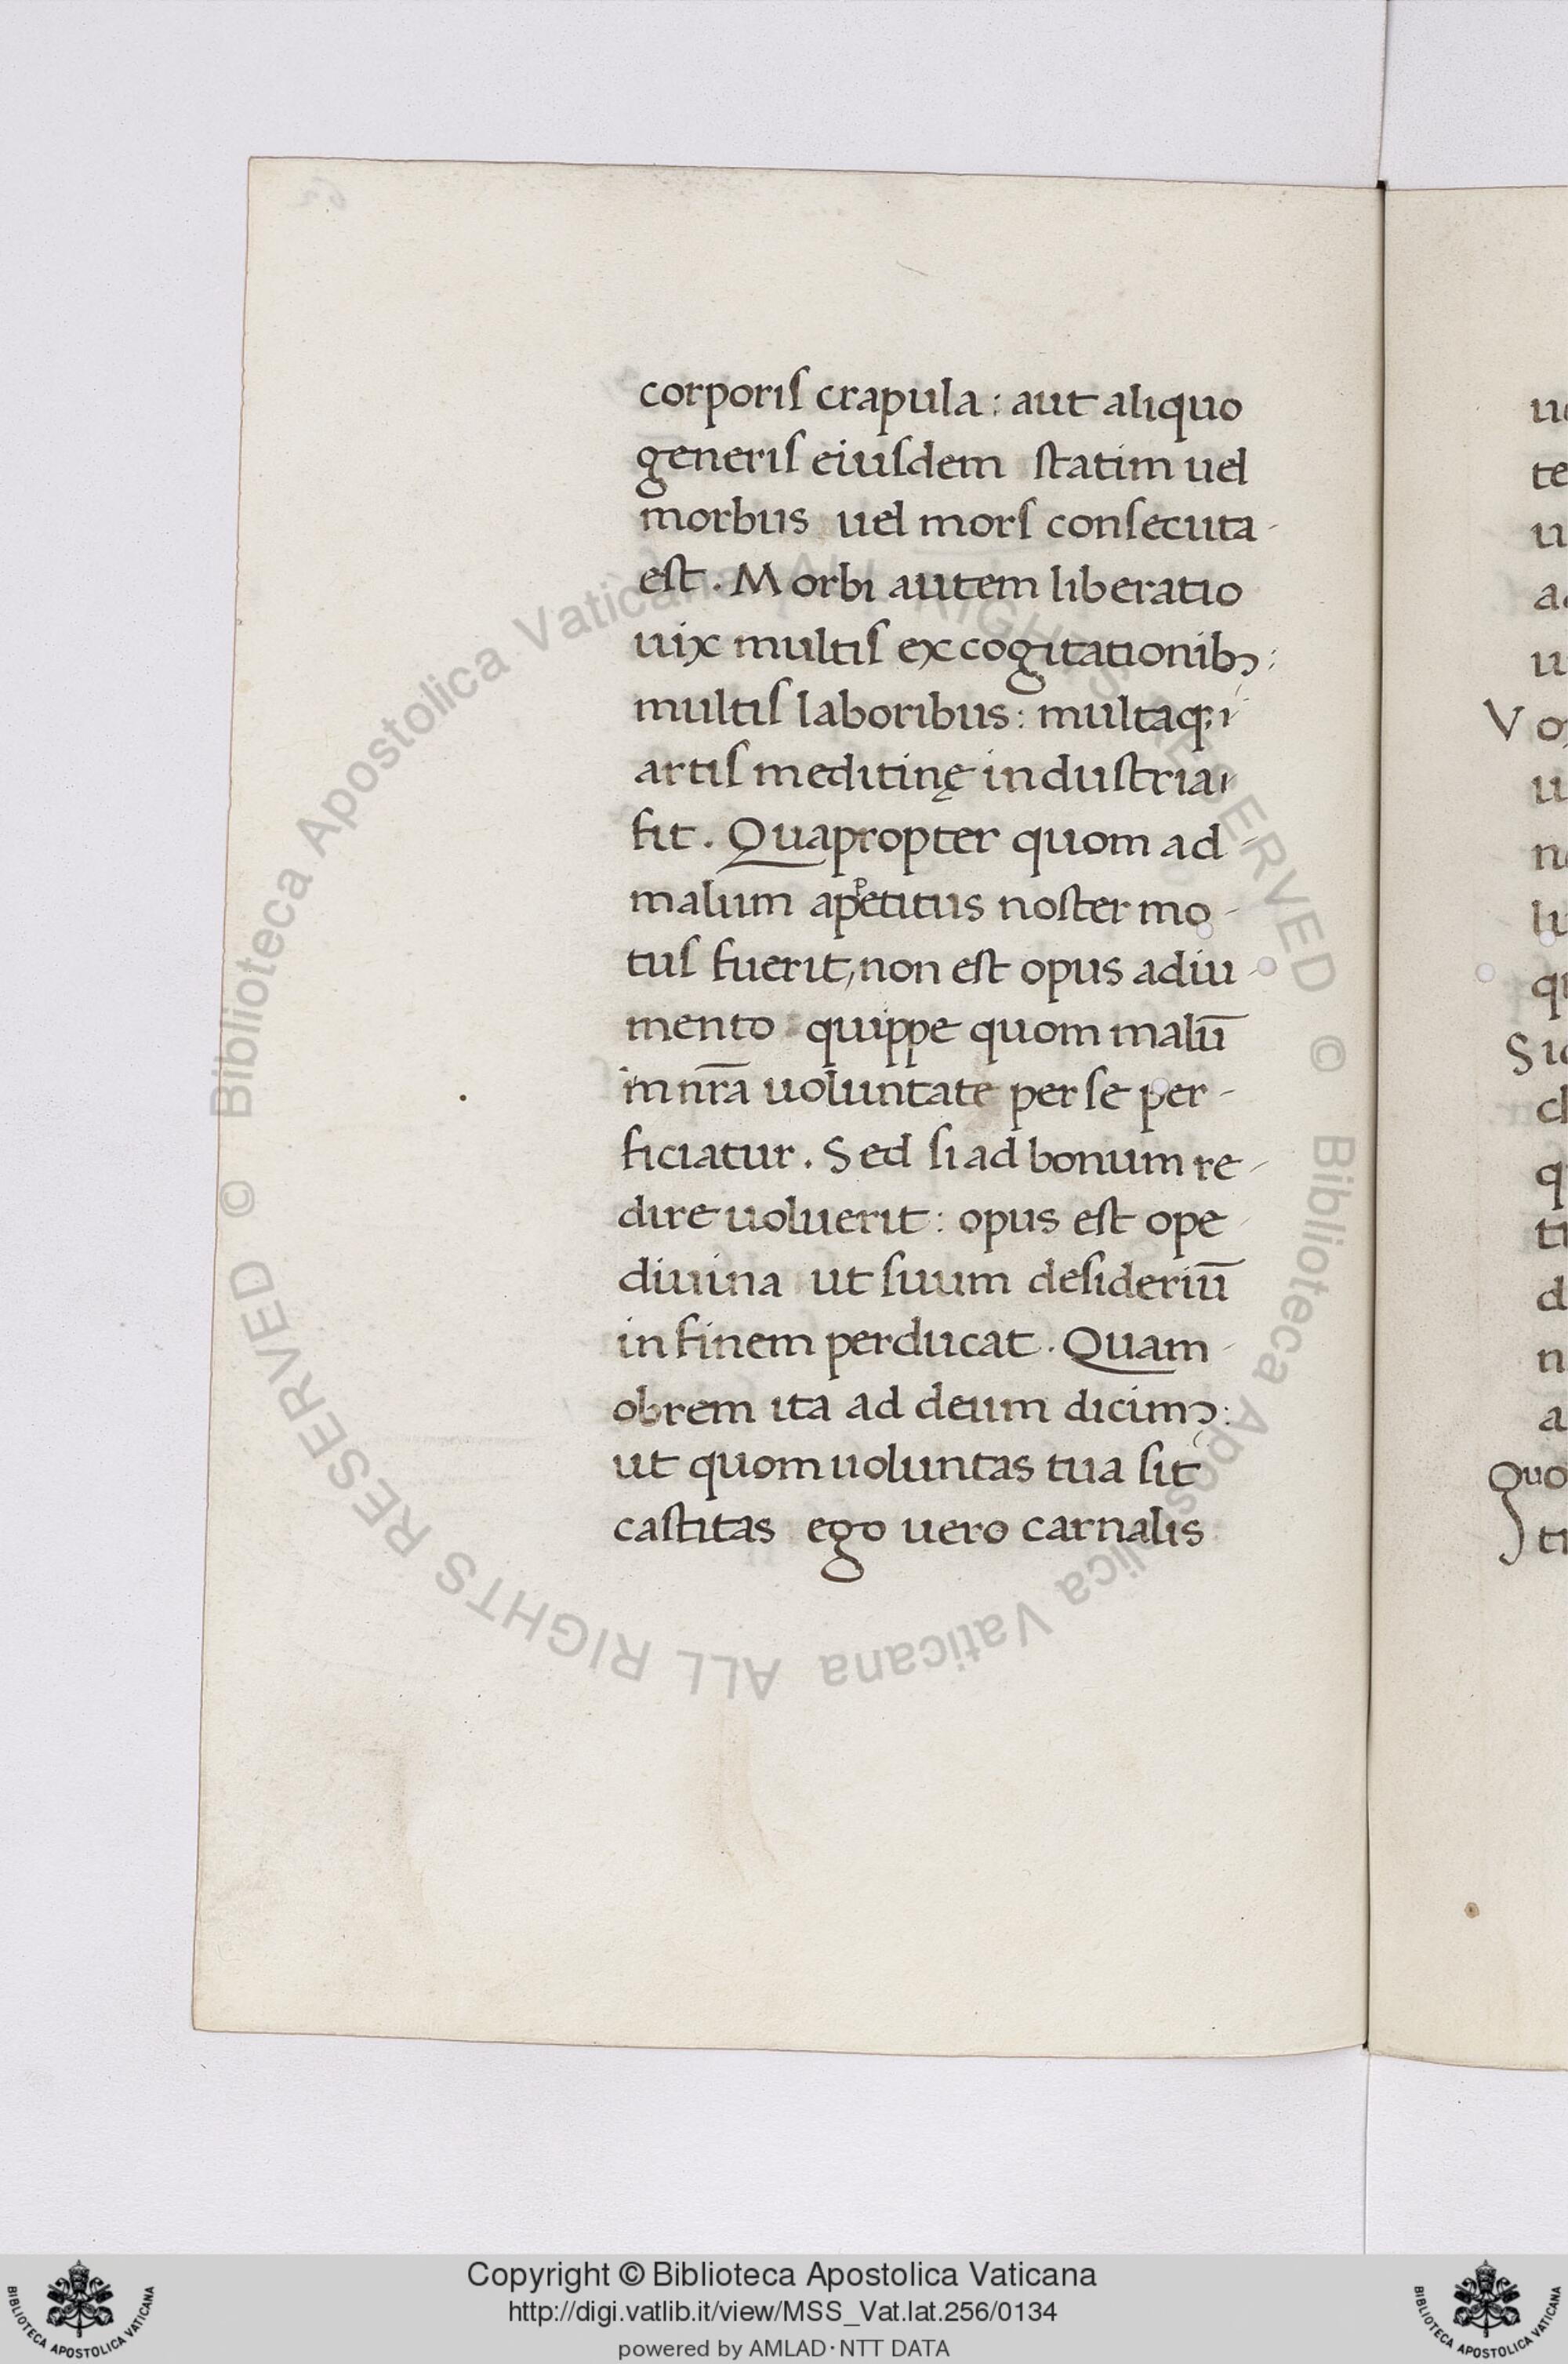 corporiſ crapula : aut aliquo
generiſ eiuſdem ſtatim uel
morbus uel morſ conſecuta -
eſt . Morbi autem liberatio
uix multiſ excogitationibꝫ :
multiſ laboribus : multaqꝫ
artiſ meditinę induſtria
fit . Quapropter quom ad -
malum apᵖetitus noſter mo -
tuſ fuerit, non eſt opus adiu -
mento quippe quom malū
in nr̄a uoluntate per ſe per -
ficiatur . Sed ſi ad bonum re -
dire uoluerit : opus eſt ope
diuina ut ſuum deſideriū
in finem perducat . Quam -
obrem ita ad deum dicimꝰ :
ut quom uoluntas tua ſit
caſtitas ego uero carnalis
V
Sic
Quo
© Biblioteca Apostolica Vaticana ALL RIGHTS RESERVED © Biblioteca Apostolica Vaticana ALL RIGHTS RESERVED
Copyright © Biblioteca Apostolica Vaticana
http://digi.vatlib.it/view/MSS_Vat.lat.256/0134
powered by AMLAD·NTT DATA
BIBLIOTECA APOSTOLICA VATICANA
BIBLIOTECA APOSTOLICA VATICANA